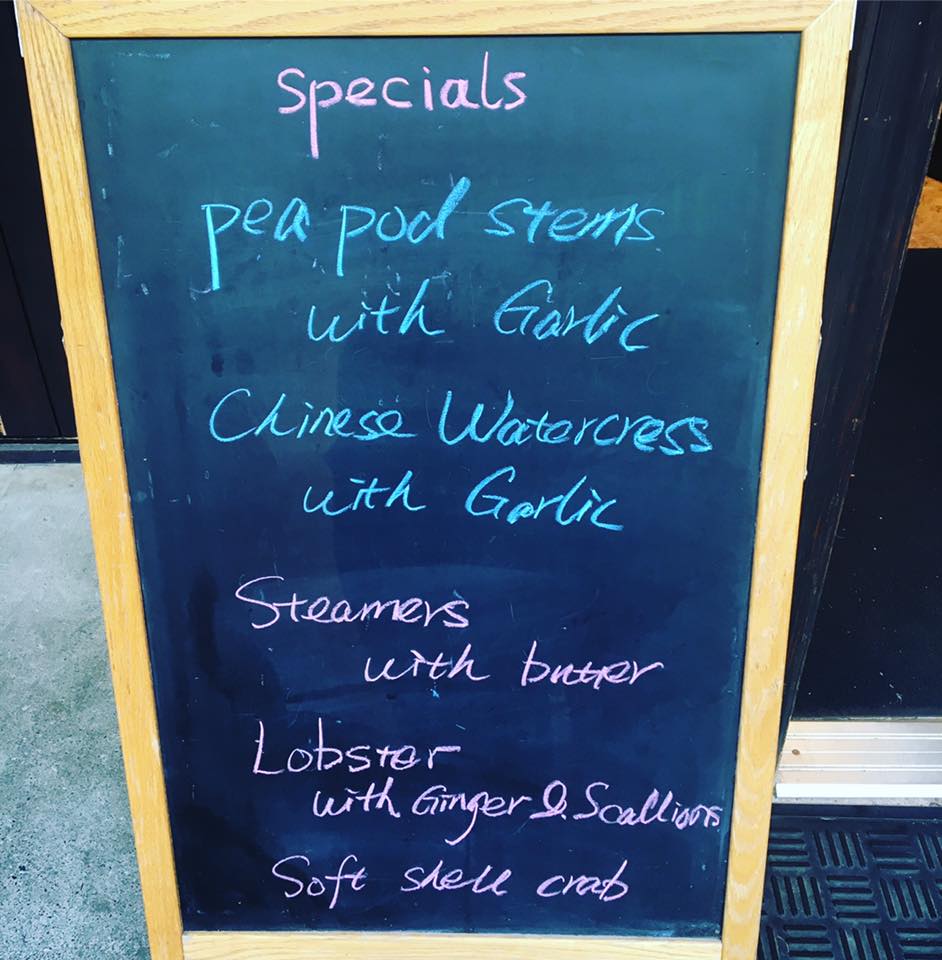 Specials
pea pod stems
with Garlic
Chinese Watercress
with Garlic
Steamers
with butter
Lobster
with Ginger & Scallions
Soft shell crab